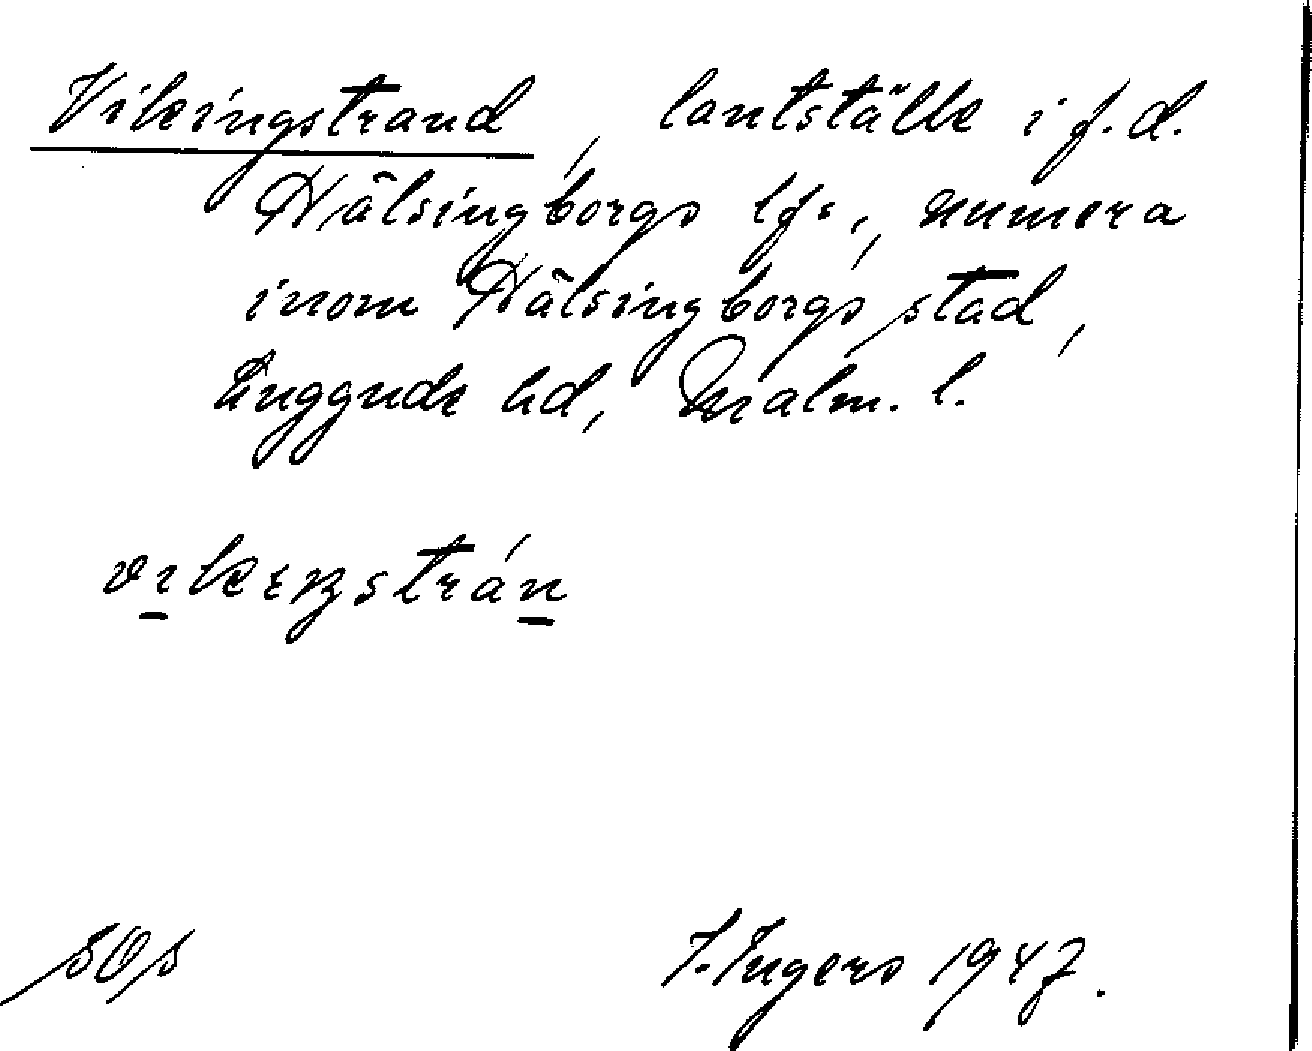 Vikingstrand, lantställe i f.d.
Hälsingborgs lfs., numera
inom Hälsingborgs stad,
Luggude hd, Malm. l.
I. Ingers 1947.